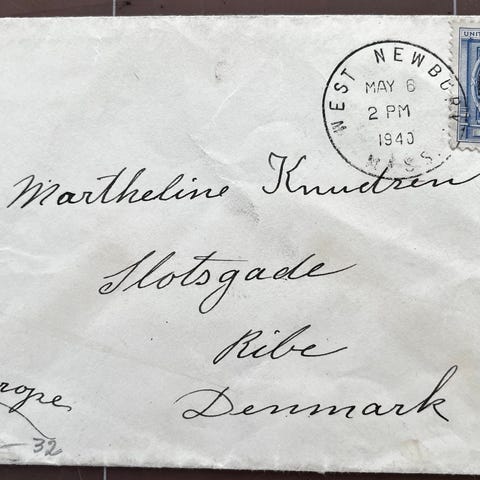 UNIT
WEST NEWBURY
MAY 6
2 PM
1940
MASS.
Martheline Knudsen
Slotsgade
Ribe
rope
Denmark
32